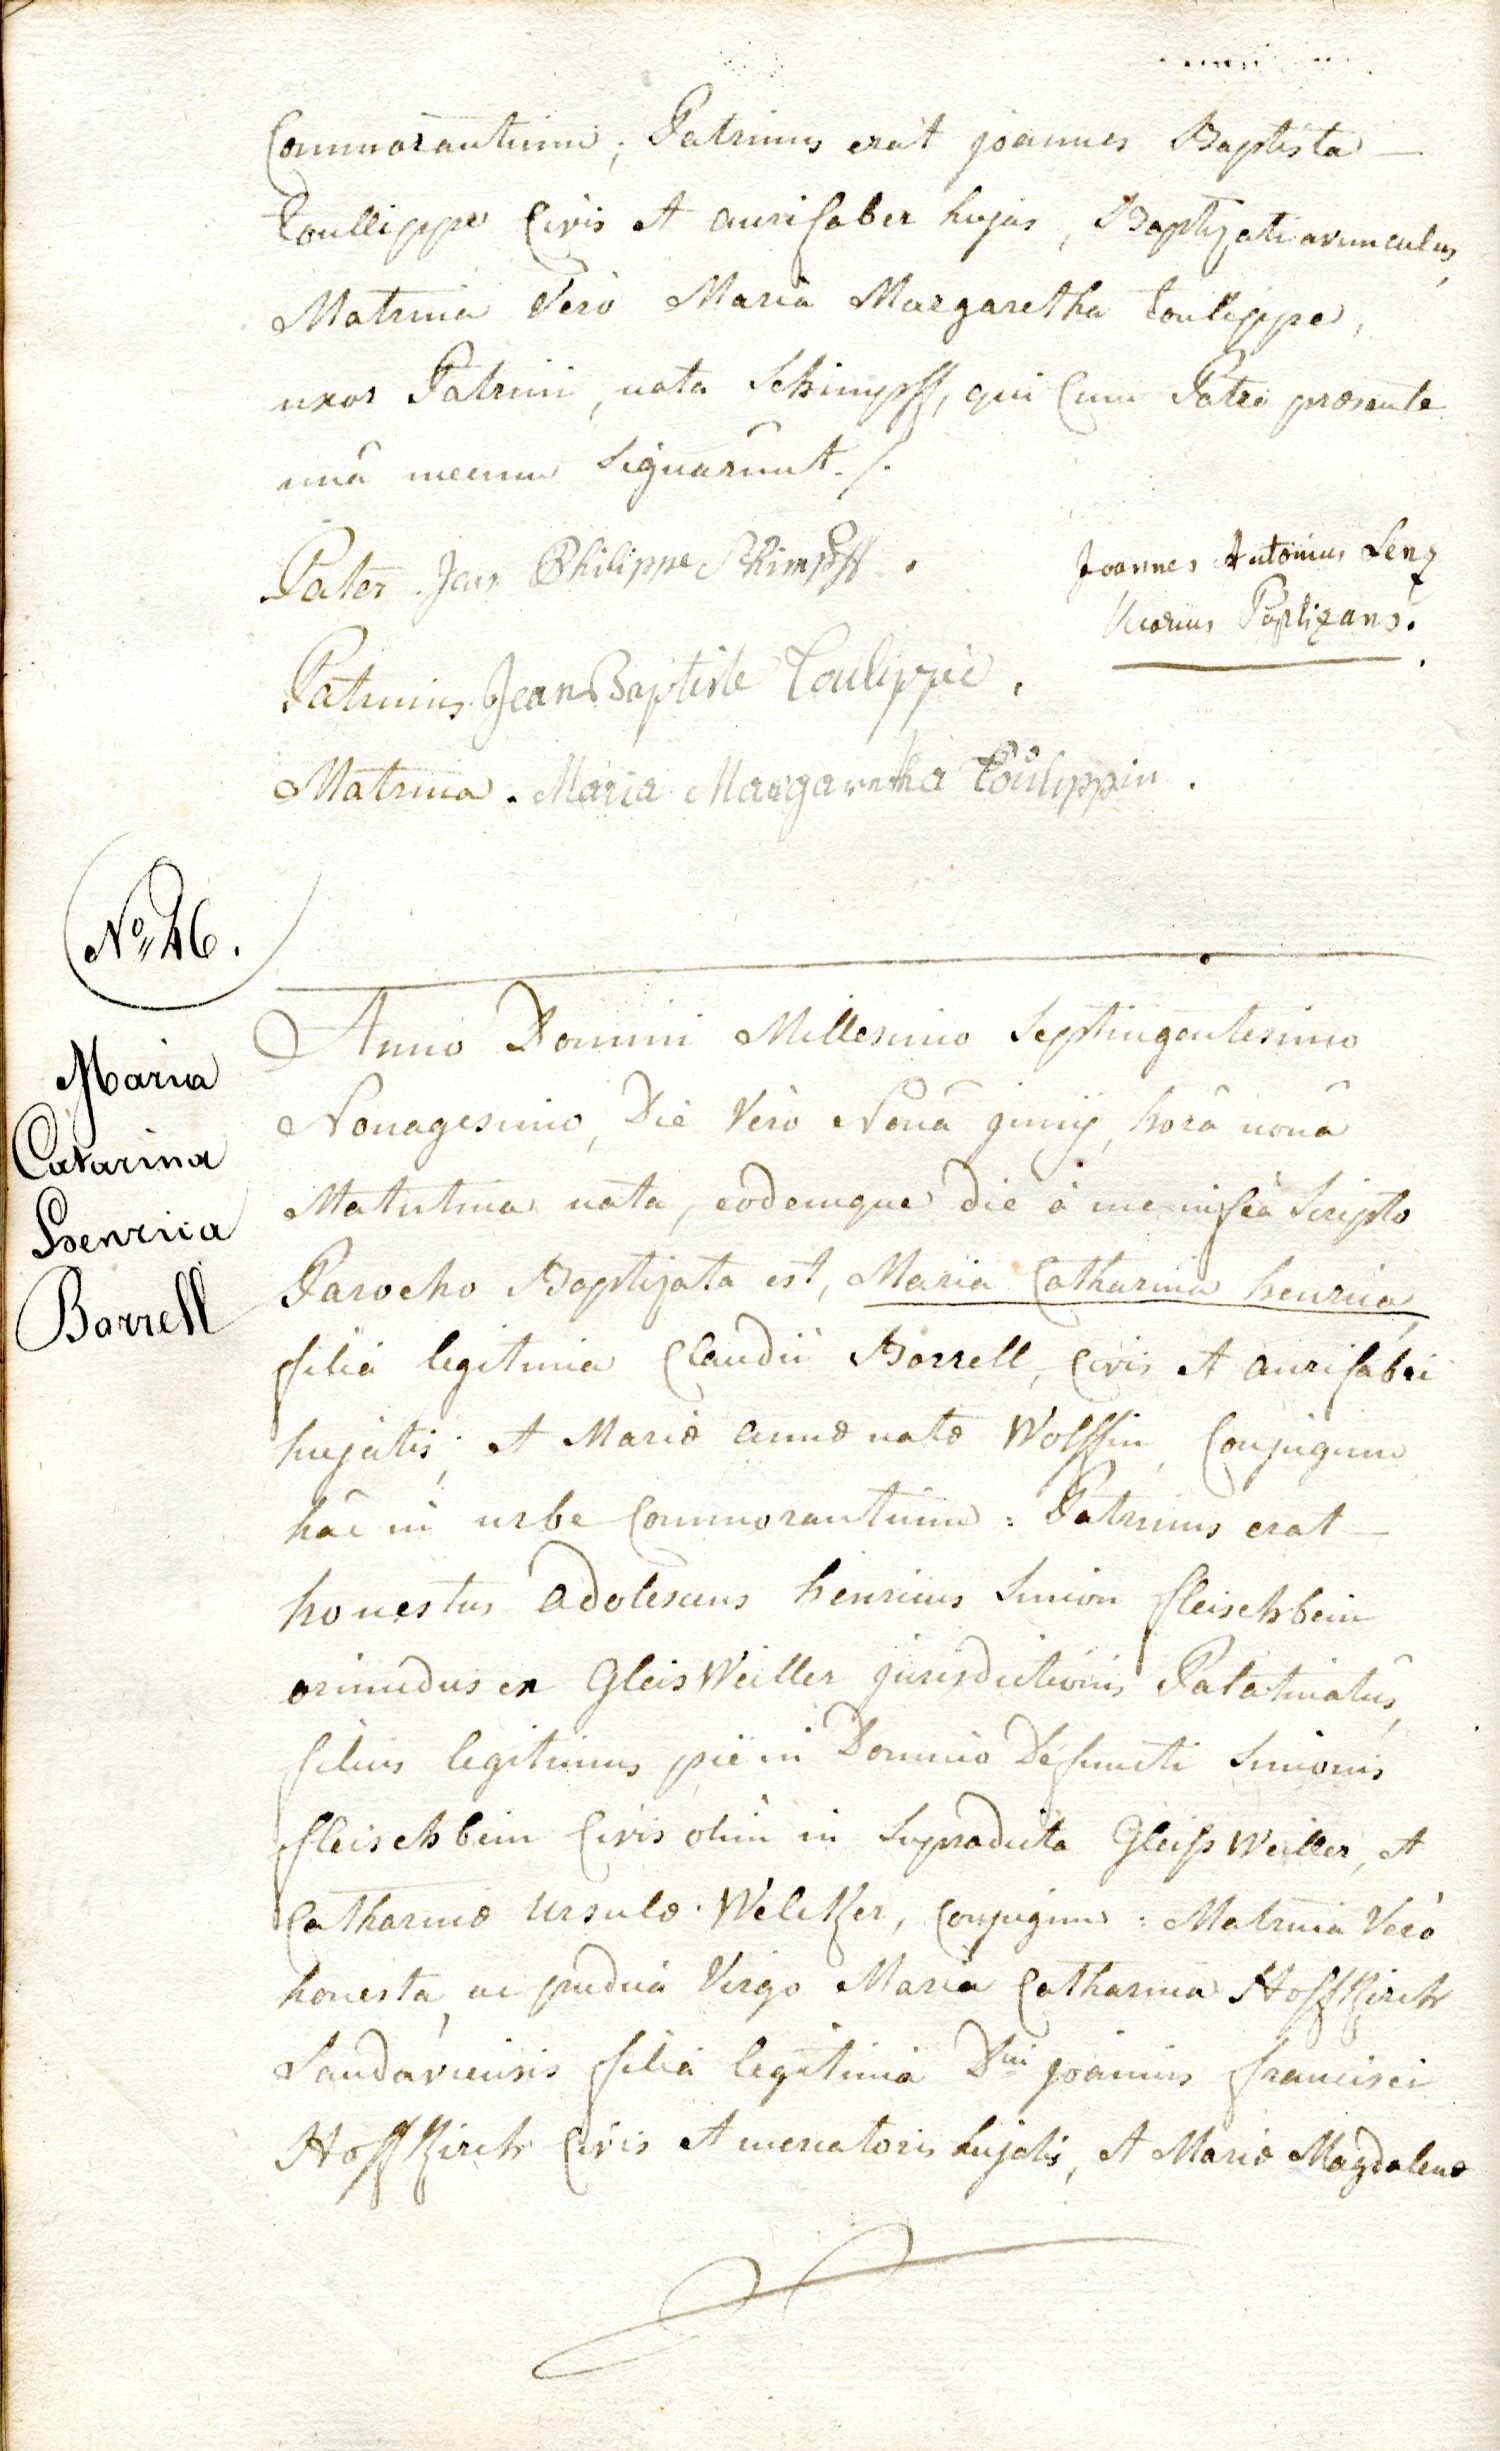 Commorantium; Patrinus erat joannes Baptista —
Toullippe Civis et aurifaber hujas, Baptizati avunculus,
Matrina verò Maria Margaretha Toulippe,
uxor Patrini, nata Schimpff, qui Cum Patre præsente
unâ mecum Signarûnt ./.
Pater Jean Philippe Schimpff .
Joannes Antonius Lenz
Vicarius Baptizans.
Patrinus Jean Baptiste Toulippe,
Matrina . Maria Margaretha Toulippin .
No. 46.
Maria
Catarina
Henrica
Borrell
Anno Domini Millesimo Septingentesimo
Nonagesimo, Die Verò Nonâ junij, horâ nonâ
Matutina nata, eodemque die à me infrà Scripto
Parocho Baptizata est, Maria Catharina henrica,
filia legitima Claudii Borrell, Civis et aurifabri
hujatis; et Mariæ annæ natæ Wolffin, Conjugum
hâc in urbe Commorantium: Patrinus erat —
honestus adolescens henricus Simon fleischbein
oriundus ex GleisWeiller jurisdictionis Palatinatûs,
filius legitimus piè in Domino Defuncti Simonis
fleischbein Civis olim in Supradicta GleissWeiller, et
Catharinæ Ursulæ Welcker, Conjugum: Matrina Verò
honesta, ac pudica Virgo Maria Catharina Hoffkirch
Landaviensis filia legitima Dni joannis francisci
Hoffkirch Civis et mercatoris hujatis, et Mariæ Magdalenæ